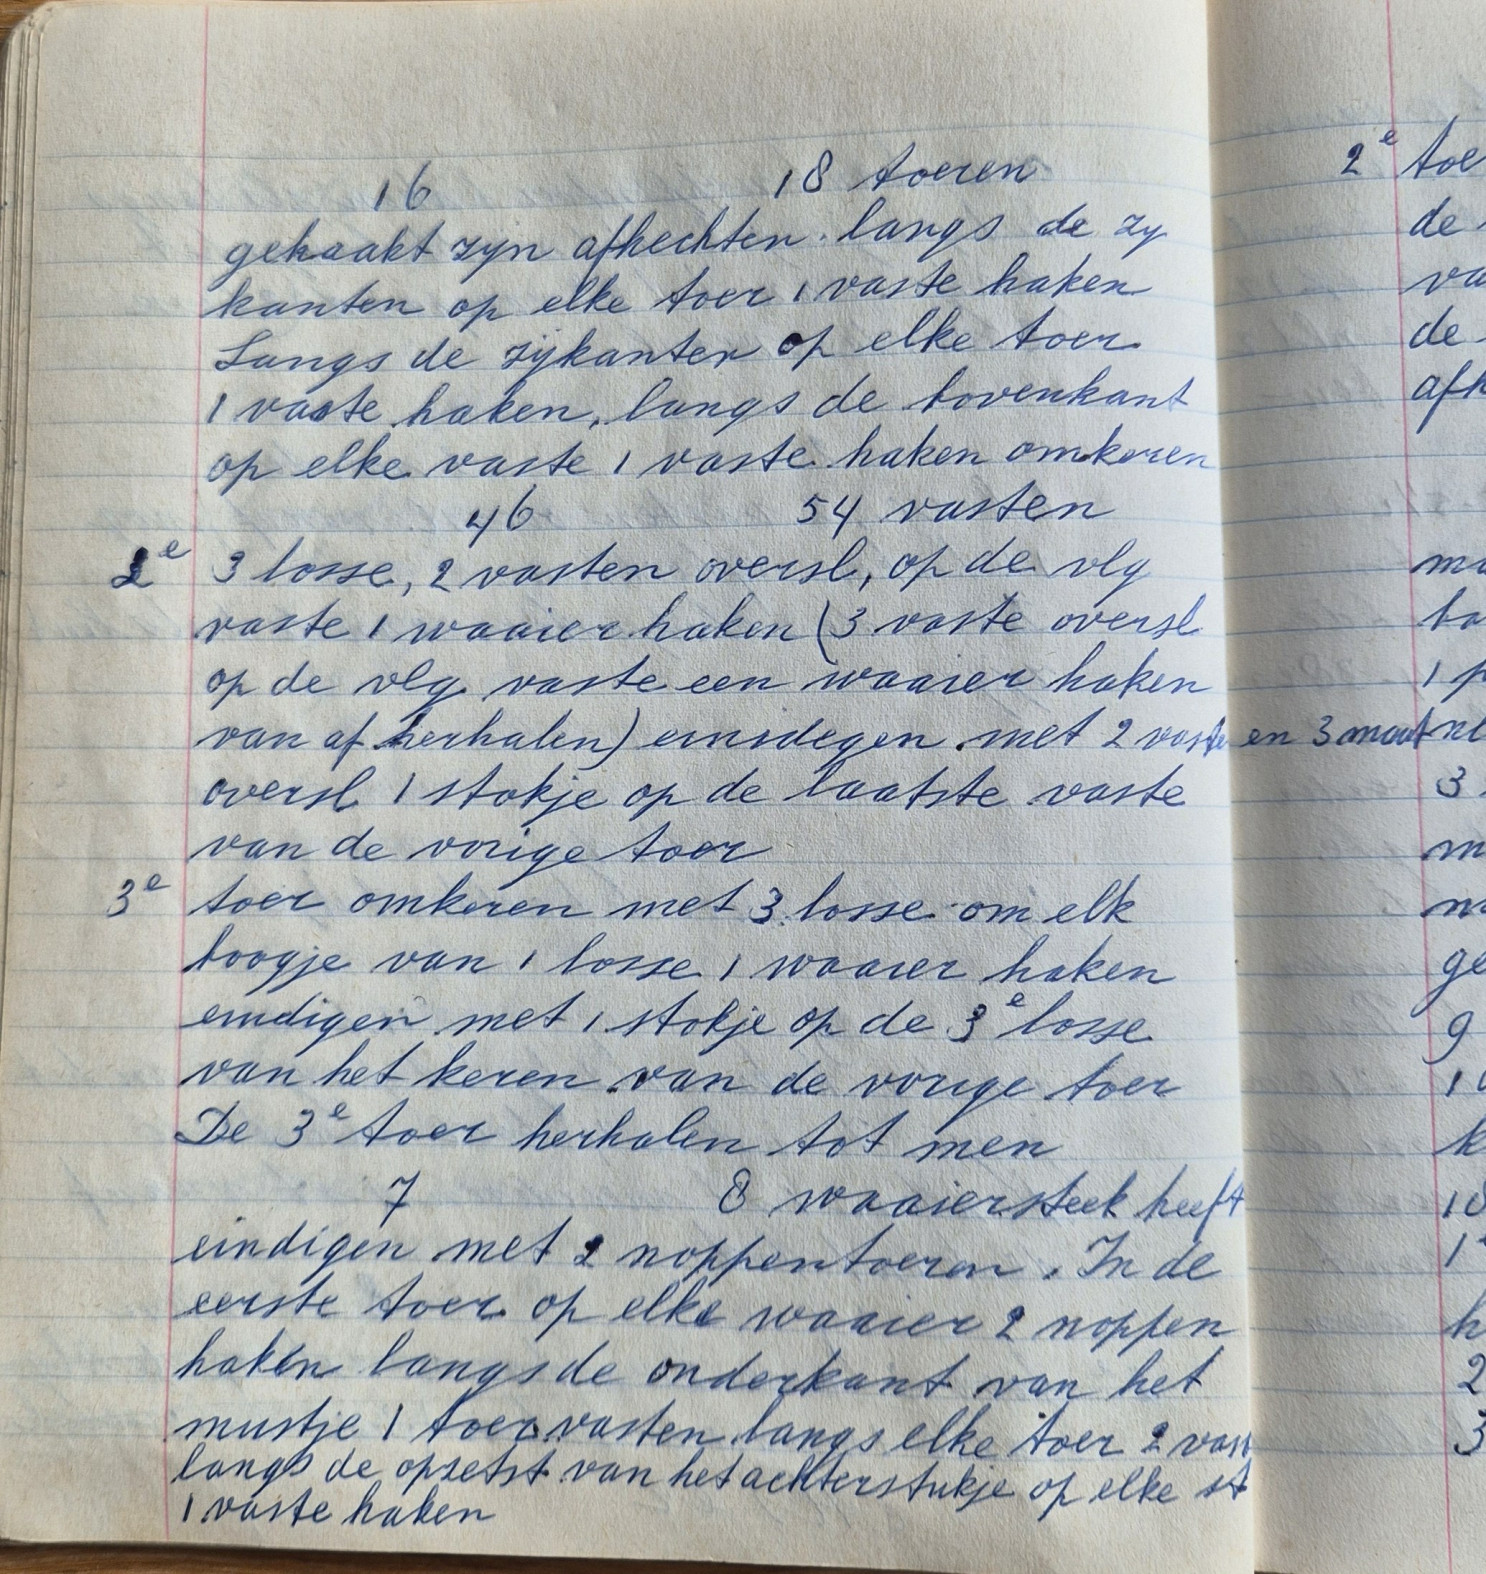 16 18 toeren
gehaakt zyn afhechten. langs de zy
kanten op elke toer 1 vaste haken
Langs de zijkanten op elke toer
1 vaste haken, langs de bovenkant
op elke vaste 1 vaste haken omkeren
46 54 vasten
2e 3 losse, 2 vasten oversl, op de vlg
vaste 1 waaier haken (3 vaste oversl
op de vlg vaste een waaier haken
van af herhalen) einsdegen met 2 vaste en 3 maat
oversl 1 stokje op de laatste vaste
van de vorige toer
3e toer omkeren met 3 losse om elk
boogje van 1 losse 1 waaier haken
eindigen met 1 stokje op de 3e losse
van het keren van de vorige toer
De 3e toer herhalen tot men
7 8 waaiersteek heeft
eindigen met 2 noppentoeren. In de
eerste toer op elke waaier 2 noppen
haken langs de onderkant van het
mustje 1 toer vasten langs elke toer 2 vast
langs de opzetst van het achterstukje op elke st
1 vaste haken
2e toe
de
va
de
afh
ma
bo
1 p
ne
3
m
m
ge
9
10
k
10
1
h
2
3